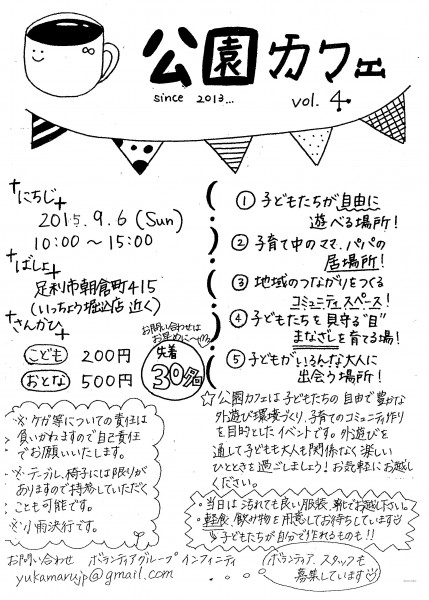 公園カフェ
since 2013...
vol. 4
にちじ
2015.9.6 (Sun)
10:00〜15:00
ばしょ
足利市朝倉町415
(いっちょう堀込店近く)
さんかひ
こども 200円
おとな 500円
お問い合わせは
お早めに〜
先着
30名
※ケガ等についての責任は
負いかねますので自己責任
でお願いいたします。
※テーブル、椅子には限りが
ありますので持参していただく
ことも可能です。
※小雨決行です。
① 子どもたちが自由に
遊べる場所!
② 子育て中のママ、パパの
居場所!
③ 地域のつながりをつくる
コミュニティスペース!
④ 子どもたちを見守る"目"
まなざしを育てる場!
⑤ 子どもがいろんな大人に
出会う場所!
☆公園カフェは子どもたちの自由で豊かな
外遊び環境づくり、子育てのコミュニティ作り
を目的としたイベントです。外遊びを
通して子どもも大人も関係なく楽しい
ひとときを過ごしましょう!お気軽にお越し
ください。
・当日は汚れても良い服装、靴でお越し下さい。
・軽食、飲み物を用意してお待ちしています
子どもたちが自分で作れるものも!!
お問い合わせ ボランティアグループ インフィニティ
yukamarujp@gmail.com
(ボランティア、スタッフも
募集しています)